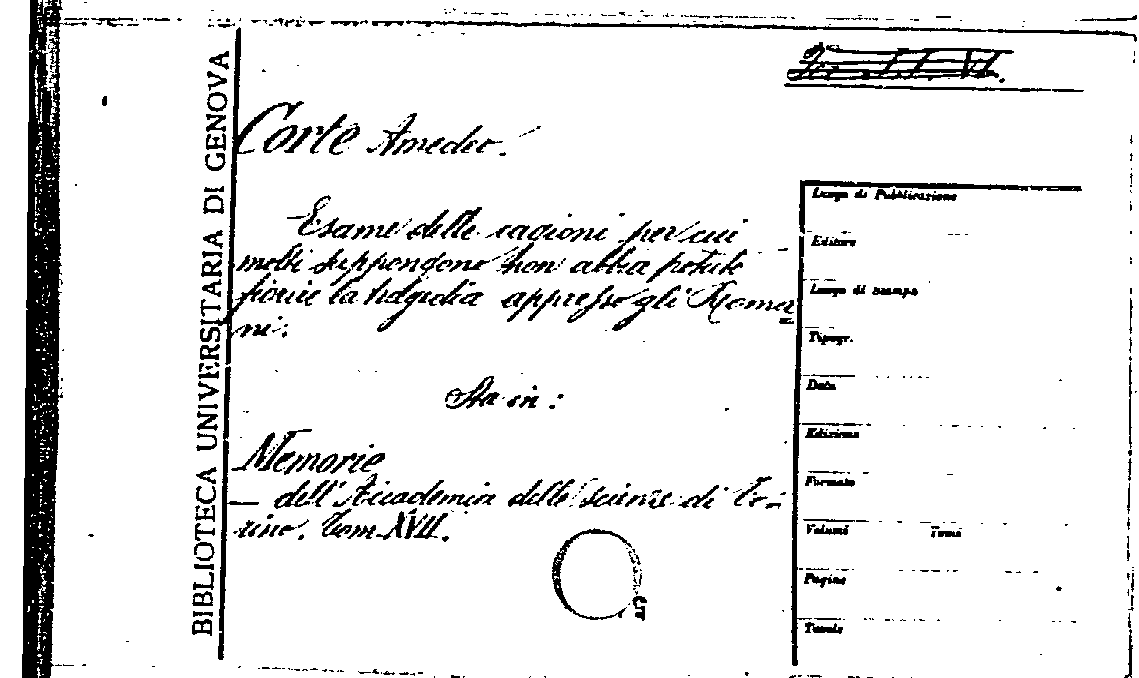 BIBLIOTECA UNIVERSITARIA DI GENOVA
Corte Amedeo.
Esame delle cagioni per cui
molti suppongono non abbia potuto
fiorire la tragedia appresso gli Roma=
ni.
Sta in:
Memorie
— dell'Accademia delle scienze di To=
rino. Tom XVII.
Luogo di Pubblicazione
Editore
Luogo di stampa
Tipogr.
Data
Edizione
Formato
Volumi Tomi
Pagine
Tavole